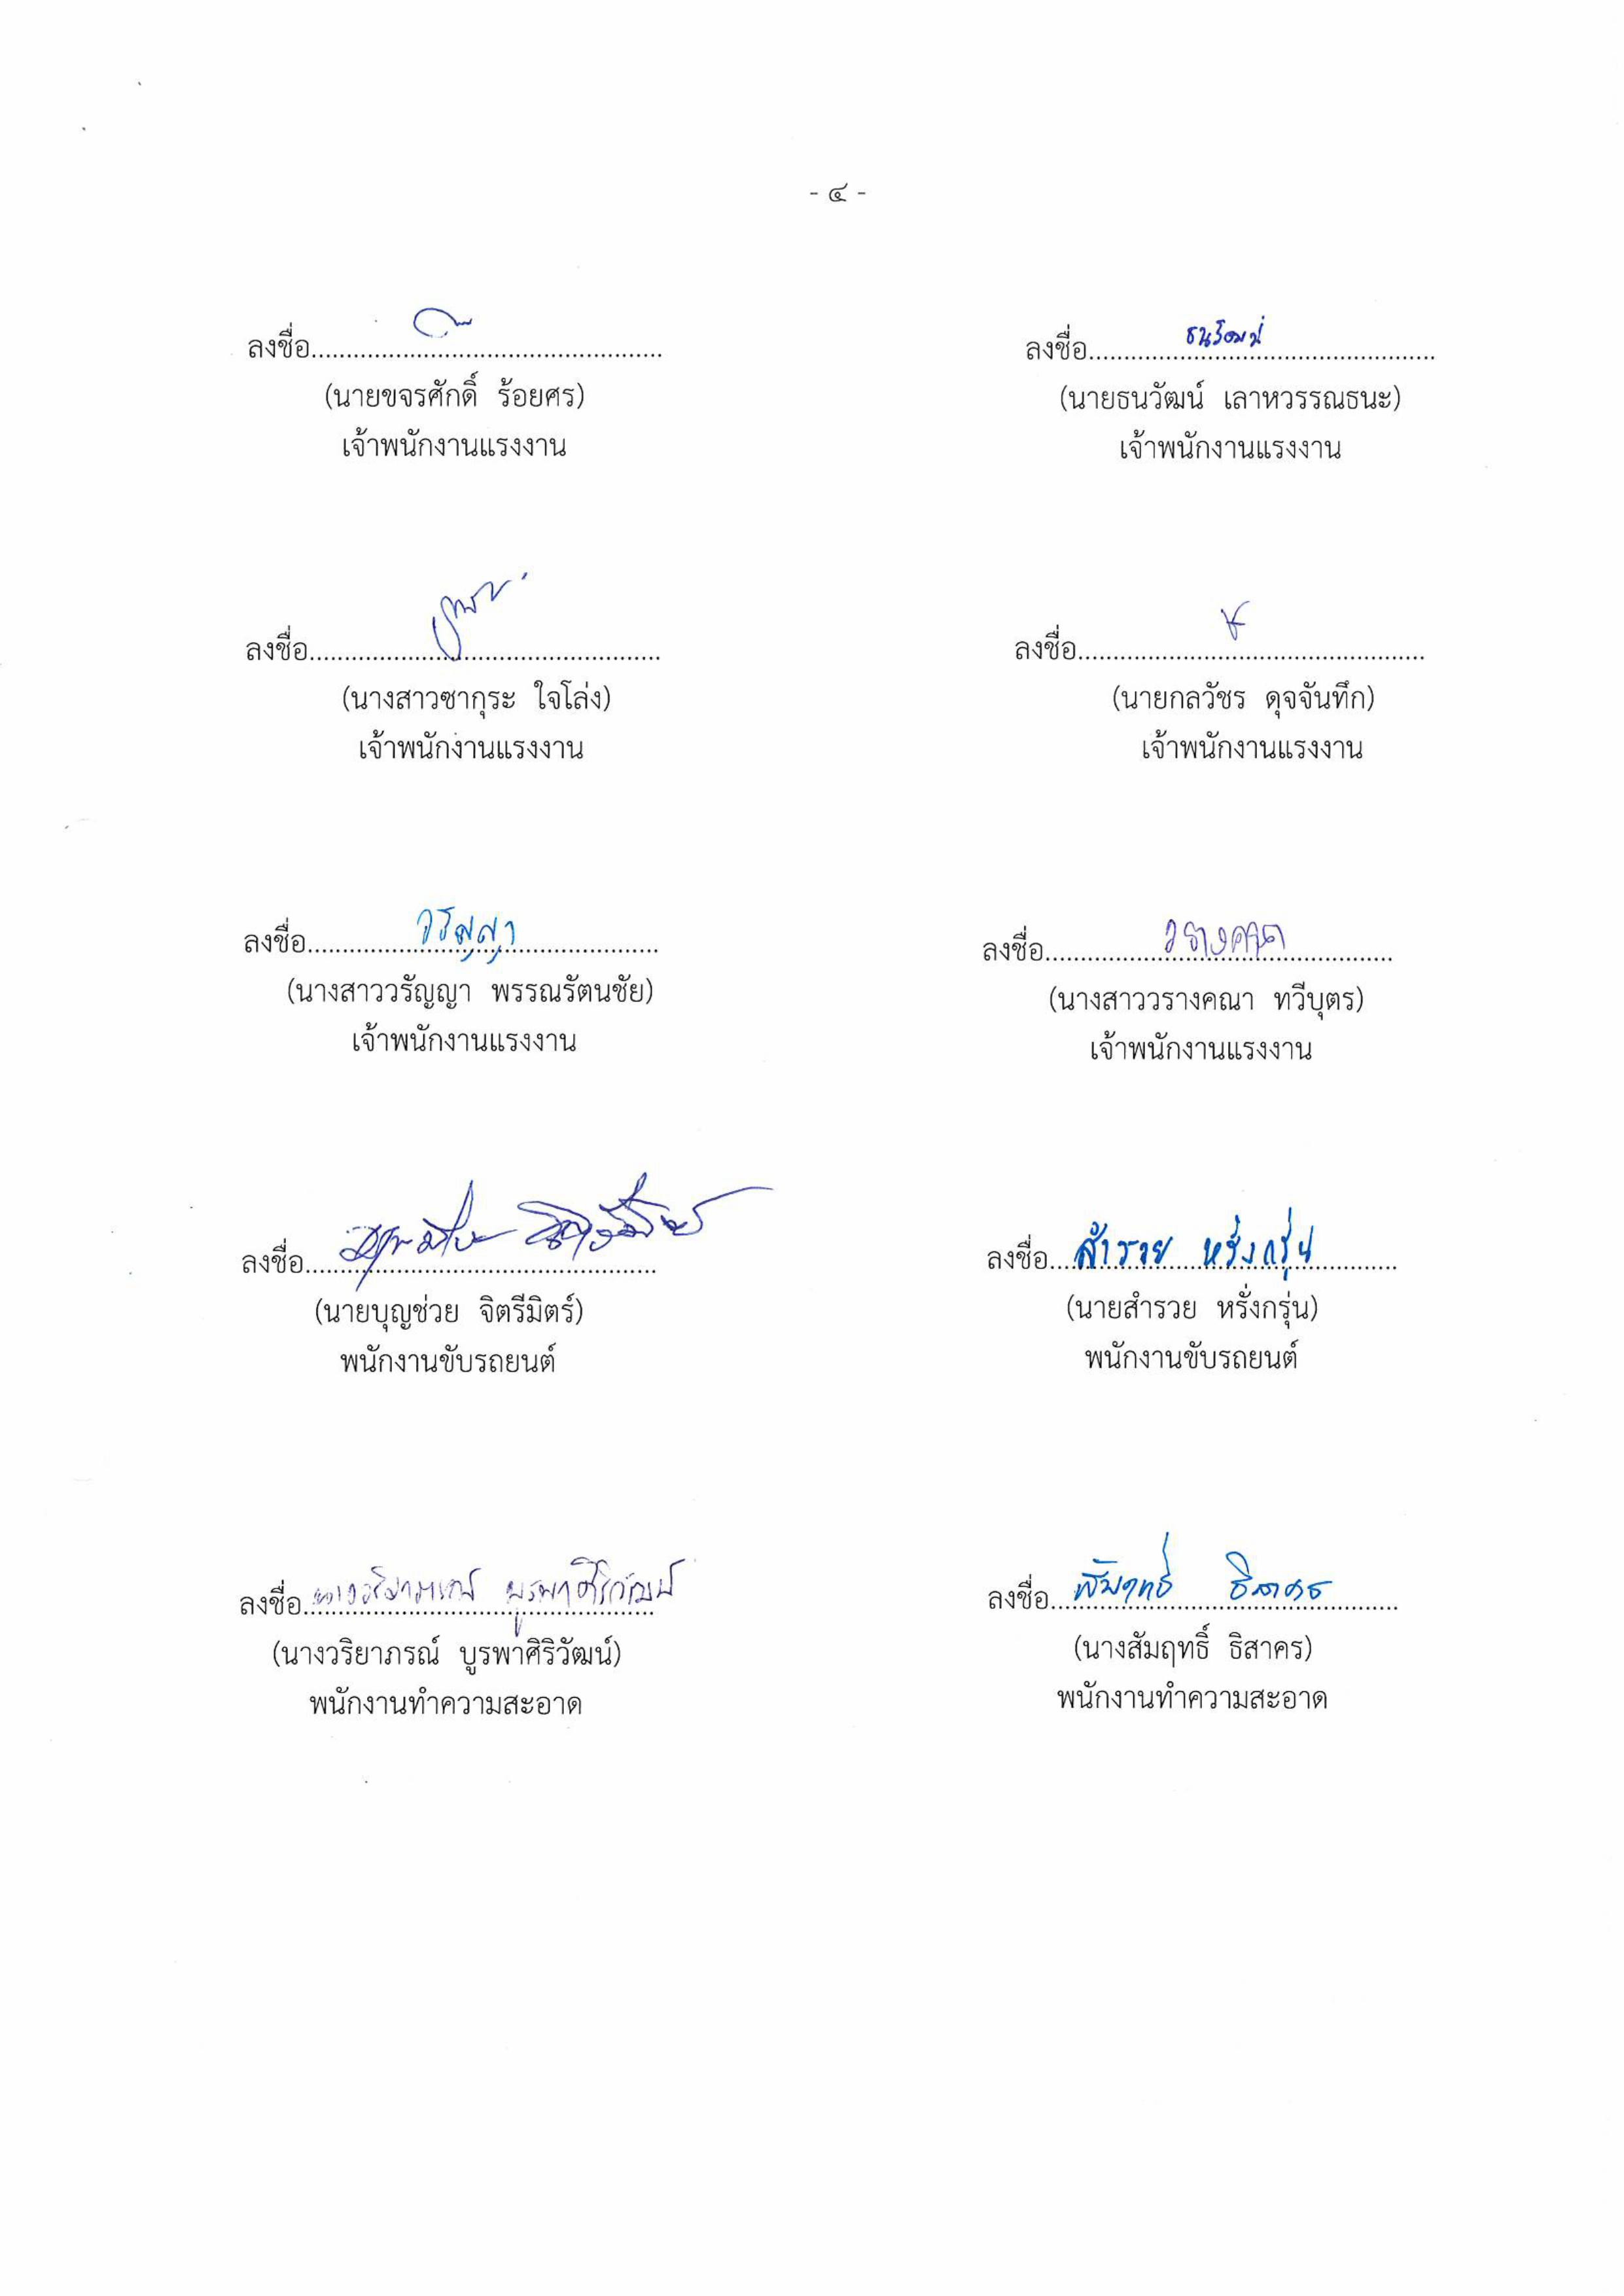 - ๔ -
ลงชื่อ..................................................
(นายขจรศักดิ์ ร้อยศร)
เจ้าพนักงานแรงงาน
ลงชื่อ.......ธนวัฒน์.......
(นายธนวัฒน์ เลาหวรรณธนะ)
เจ้าพนักงานแรงงาน
ลงชื่อ..................................................
(นางสาวซากุระ ใจโล่ง)
เจ้าพนักงานแรงงาน
ลงชื่อ..................................................
(นายกลวัชร ดุจจันทึก)
เจ้าพนักงานแรงงาน
ลงชื่อ.......วรัญญา.......
(นางสาววรัญญา พรรณรัตนชัย)
เจ้าพนักงานแรงงาน
ลงชื่อ.......วรางคณา.......
(นางสาววรางคณา ทวีบุตร)
เจ้าพนักงานแรงงาน
ลงชื่อ..................................................
(นายบุญช่วย จิตรีมิตร์)
พนักงานขับรถยนต์
ลงชื่อ...สำรวย หรั่งกรุ่น.......
(นายสำรวย หรั่งกรุ่น)
พนักงานขับรถยนต์
ลงชื่อ นางวริยาภรณ์ บูรพาศิริวัฒน์
(นางวริยาภรณ์ บูรพาศิริวัฒน์)
พนักงานทำความสะอาด
ลงชื่อ...สัมฤทธิ์ ธิสาคร.......
(นางสัมฤทธิ์ ธิสาคร)
พนักงานทำความสะอาด